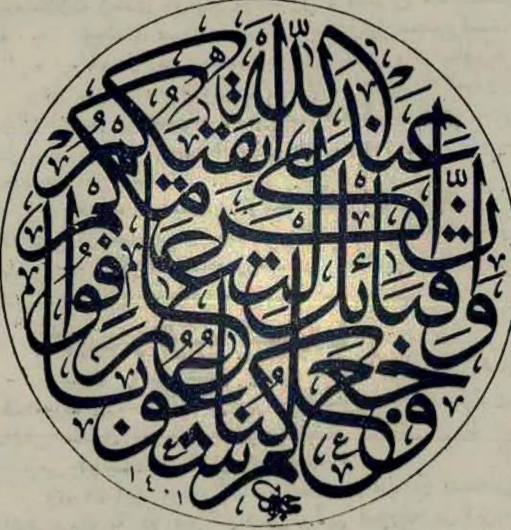 وجعلنكم شعوبا
وقبائل لتعارفوا
ان اكرمكم
عند الله اتقيكم
١٤٠١